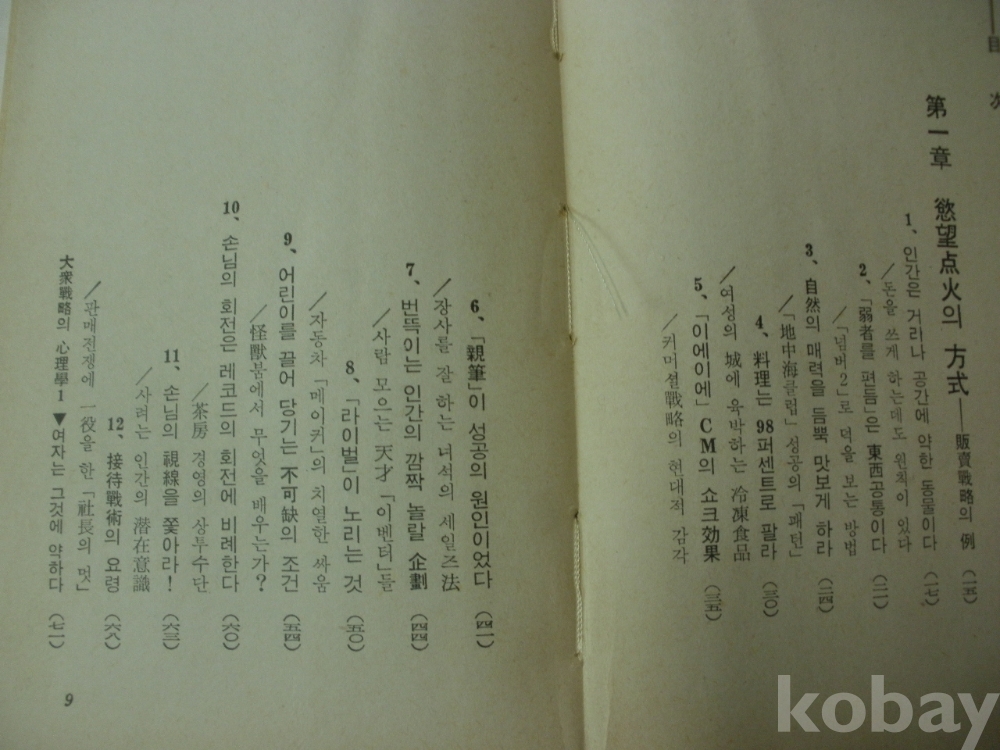 目 次
第一章 慾望点火의 方式──販賣戰略의 例 (一五)
1、인간은 거리나 공간에 약한 동물이다 (一七)
／돈을 쓰게 하는데도 원칙이 있다
2、「弱者를 편듦」은 東西공통이다 (二一)
／「넘버2」로 덕을 보는 방법
3、自然의 매력을 듬뿍 맛보게 하라 (二四)
／「地中海클럽」성공의 「패턴」
4、料理는 98퍼센트로 팔라 (三〇)
／여성의 城에 육박하는 冷凍食品
5、「이에이에」CM의 쇼크効果 (三五)
／커머셜戰略의 현대적 감각
6、「親筆」이 성공의 원인이었다 (四一)
／장사를 잘 하는 녀석의 세일즈法
7、번뜩이는 인간의 깜짝 놀랄 企劃 (四四)
／사람 모으는 天才「이벤터」들
8、「라이벌」이 노리는 것 (五〇)
／자동차「메이커」의 치열한 싸움
9、어린이를 끌어 당기는 不可缺의 조건 (五四)
／怪獸붐에서 무엇을 배우는가?
10、손님의 회전은 레코드의 회전에 비례한다 (六〇)
／茶房 경영의 상투수단
11、손님의 視線을 쫓아라! (六三)
／사려는 인간의 潜在意識
12、接待戰術의 요령 (六八)
／판매전쟁에 一役을 한「社長의 멋」
大衆戰略의 心理學1▼여자는 그것에 약하다 (七一)
9
kobay